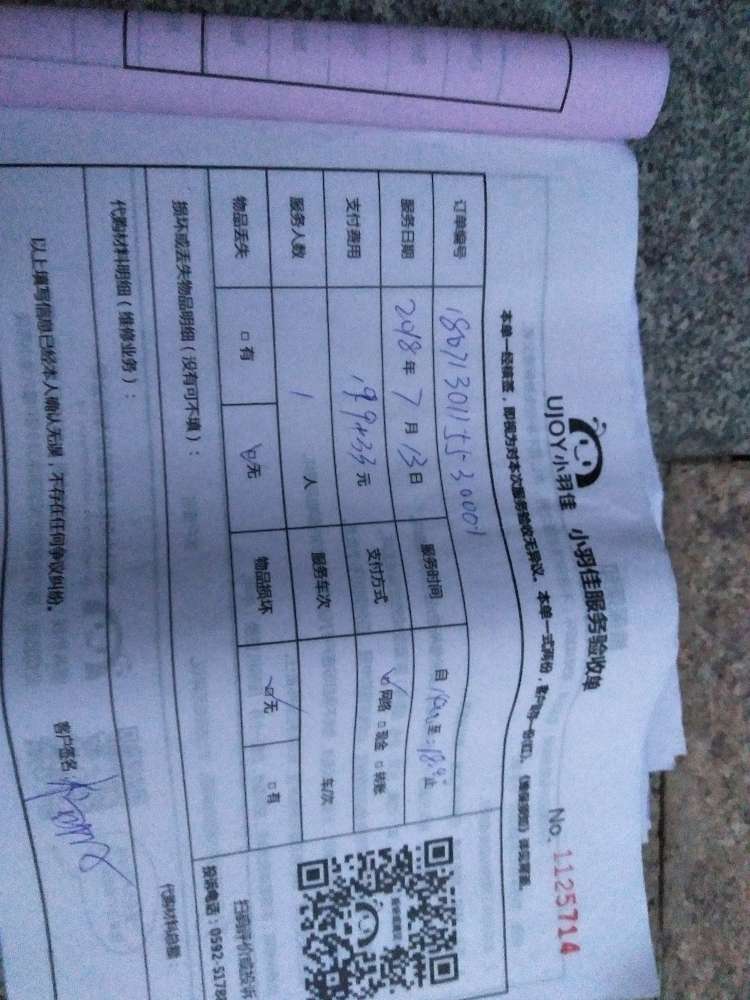 UJOY小羽佳 小羽佳服务验收单
No. 1125714
本单一经核签，即视为对本次服务验收无异议。本单一式两份，客户
订单编号
服务时间 自 至 止
服务日期 2018 年 7 月 13 日
支付费用 199+33 元 支付方式 网络 □ 现金 □ 转账
服务人数 1 人 服务车次 车/次
物品丢失 □ 有 □ 无 物品损坏 □ 无 □ 有
损坏或丢失物品明细（没有可不填）：
代购材料明细（维修业务）： 代购材料总额：
以上填写信息已经本人确认无误，不存在任何争议纠纷。 客户签名：
扫描评价或投诉
投诉电话：0592-5178